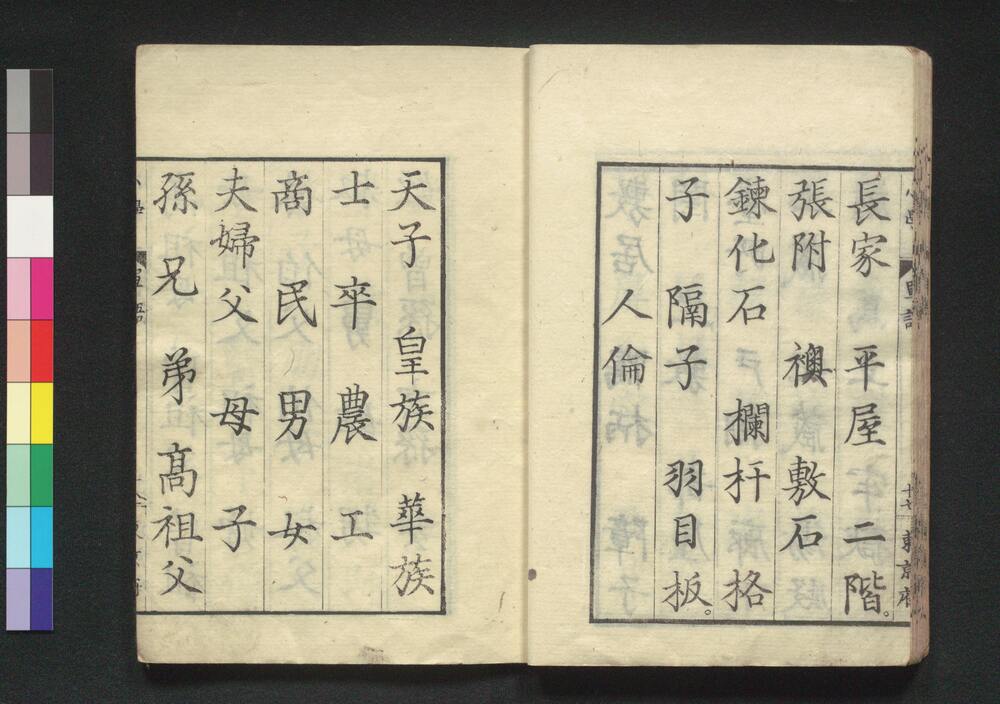 長家 平屋 二階。
張附 襖 敷石
鍊化石 欄杆 格
子 隔子 羽目板。
人倫
天子 皇族 華族
士 卒 農 工
商 民 男 女
夫婦 父母 子
孫 兄 弟 高祖父
十七 東京府